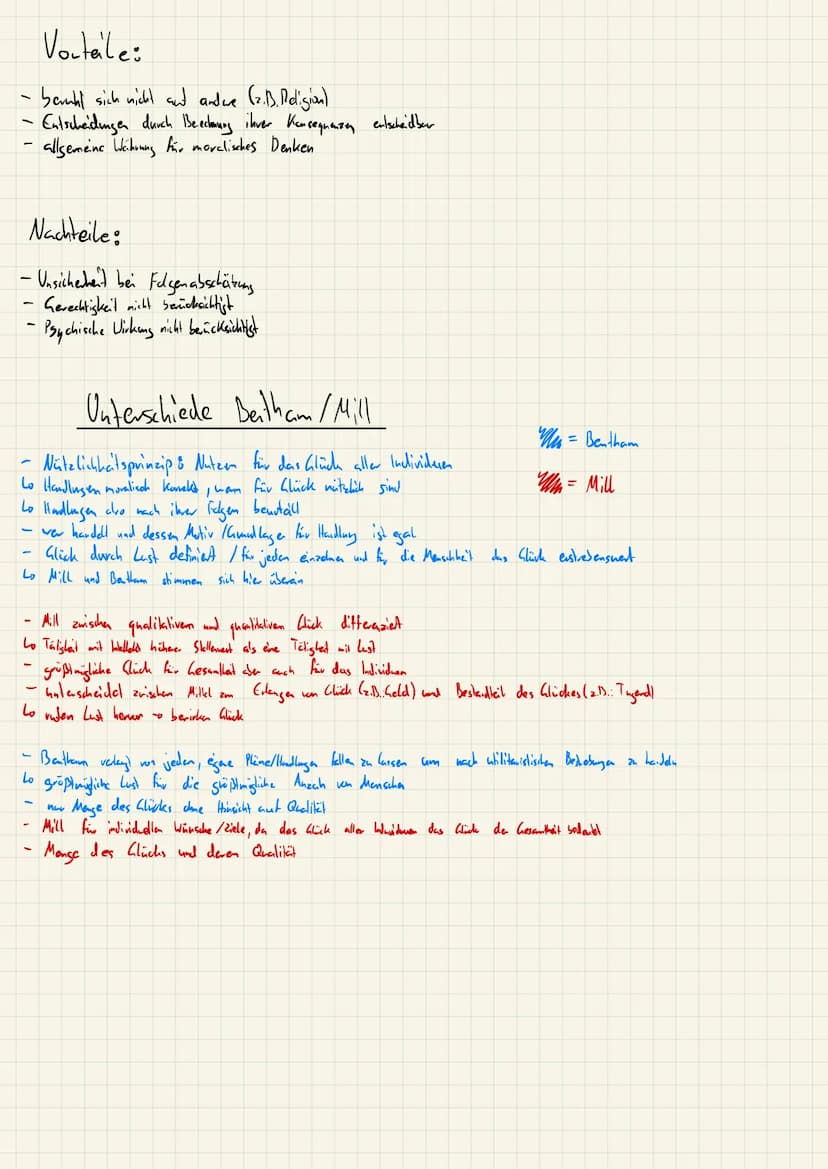 Vorteile:
- beruht sich nicht auf andere (z.B. Religion)
- Entscheidungen durch Berechnung ihrer Konsequenzen entscheidbar
- allgemeine Währung für moralisches Denken
Nachteile:
- Unsicherheit bei Folgenabschätzung
- Gerechtigkeit nicht berücksichtigt
- Psychische Wirkung nicht berücksichtigt
Unterschiede Bentham/Mill
= Bentham
= Mill
- Nützlichkeitsprinzip: Nutzen für das Glück aller Individuen
↳ Handlungen moralisch korrekt, wenn für Glück nützlich sind
↳ Handlungen also nach ihrer Folgen beurteilt
- wer handelt und dessen Motiv/Grundlage für Handlung ist egal
- Glück durch Lust definiert / für jeden einzelnen und für die Menschheit das Glück erstrebenswert
↳ Mill und Bentham stimmen sich hier überein
- Mill zwischen qualitativem und quantitativen Glück differenziert
↳ Tätigkeit mit höher Stellenwert als eine Tätigkeit mit Lust
- größtmögliche Glück für Gesamtheit aber auch für das Individuum
- unterscheidet zwischen Mittel zum Erlangen von Glück (z.B.: Geld) und Bestandteil des Glückes (z.B.: Tugend)
↳ rufen Lust hervor → bewirken Glück
- Bentham verlangt von jeden, eigene Pläne/Handlungen fallen zu lassen um nach utilitaristischen zu handeln
↳ größtmögliche Lust für die größtmögliche Anzahl von Menschen
- nur Menge des Glückes ohne Hinsicht auf Qualität
- Mill für individuellen Wünsche/Ziele, da das Glück aller Individuen das Glück der Gesamtheit bedeutet
- Menge des Glücks und deren Qualität